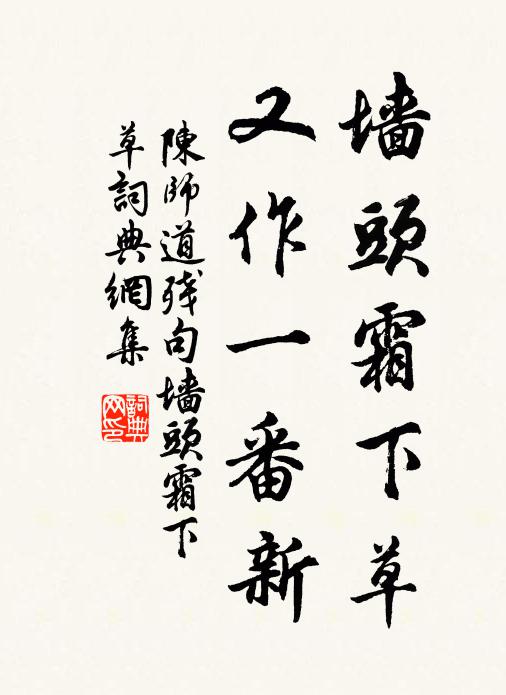 墙頭霜下草
又作一番新
陳師道残句墙頭霜下
草詞典網集
詞典
网印